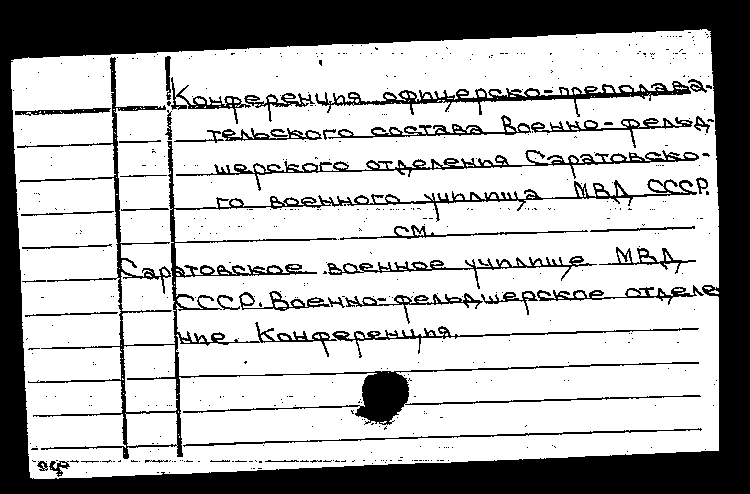 Конференция офицерско-преподава-
тельского состава Военно-фельд-
шерского отделения Саратовско-
го военного училища МВД СССР.
см.
Саратовское военное училище МВД
СССР. Военно-фельдшерское отделе
ние. Конференция.